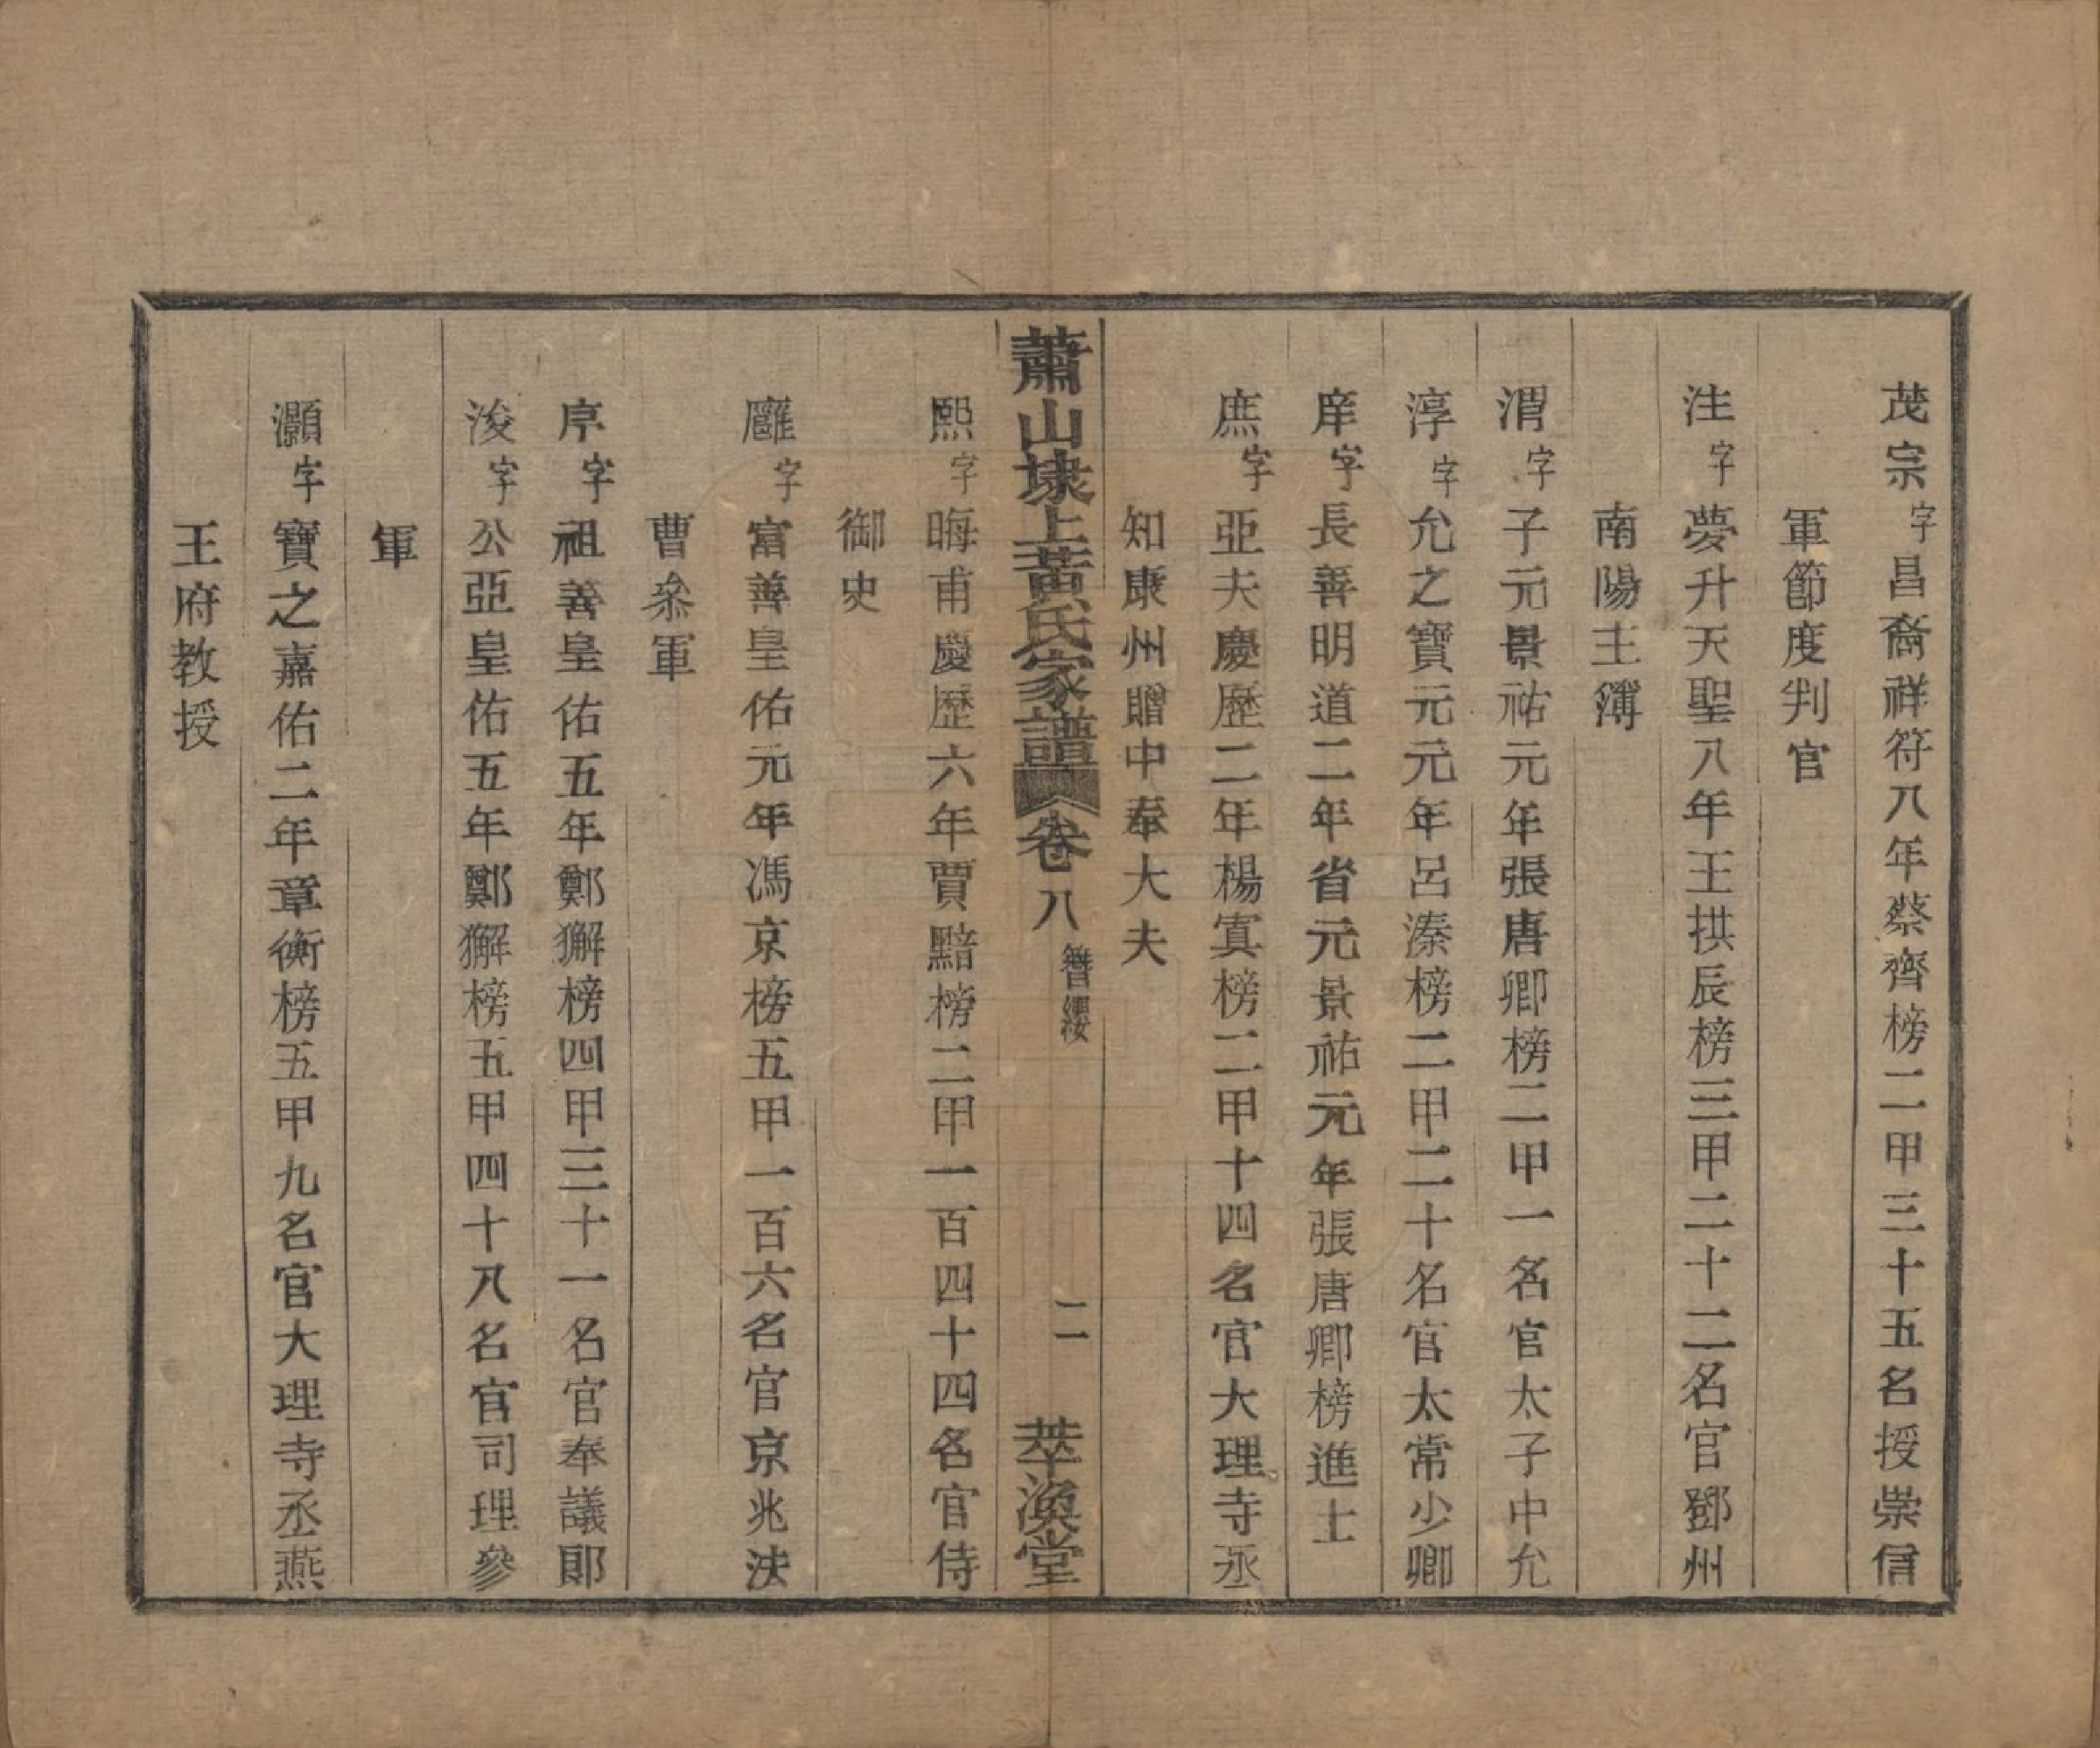 茂宗字昌裔祥符八年蔡齊榜二甲三十五名授崇信
軍節度判官
注字夢升天聖八年王拱辰榜三甲二十二名官鄧州
南陽主簿
渭字子元景祐元年張唐卿榜二甲一名官太子中允
淳字允之寶元元年呂溱榜二甲二十名官太常少卿
庠字長善明道二年省元景祐元年張唐卿榜進士
庶字亞夫慶歷二年楊寘榜二甲十四名官大理寺丞
知康州贈中奉大夫
蕭山埭上黃氏家譜 卷八 簪纓 二 萃渙堂
熙字晦甫慶歷六年賈黯榜二甲一百四十四名官侍
御史
廱字富善皇佑元年馮京榜五甲一百六名官京兆法
曹叅軍
序字祖善皇佑五年鄭獬榜四甲三十一名官奉議郎
浚字公亞皇佑五年鄭獬榜五甲四十八名官司理參
軍
灝字寶之嘉佑二年章衡榜五甲九名官大理寺丞燕
王府教授